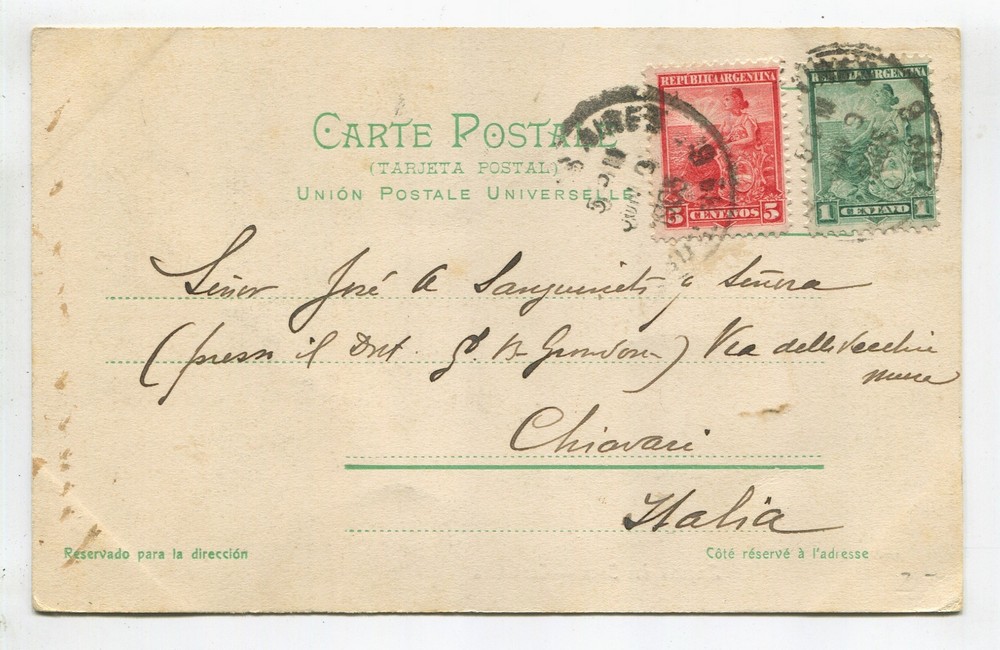 CARTE POSTALE
(TARJETA POSTAL)
UNIÓN POSTALE UNIVERSELLE
REPUBLICA ARGENTINA
5 CENTAVOS 5
REPUBLICA ARGENTINA
1 CENTAVO 1
AIRES
5 PM
Señor José A Sanguineti y Señora
(presso il Dott. G. B. ) Via delle Vecchie
mura
Chiavari
Italia
Reservado para la dirección
Côté réservé à l'adresse